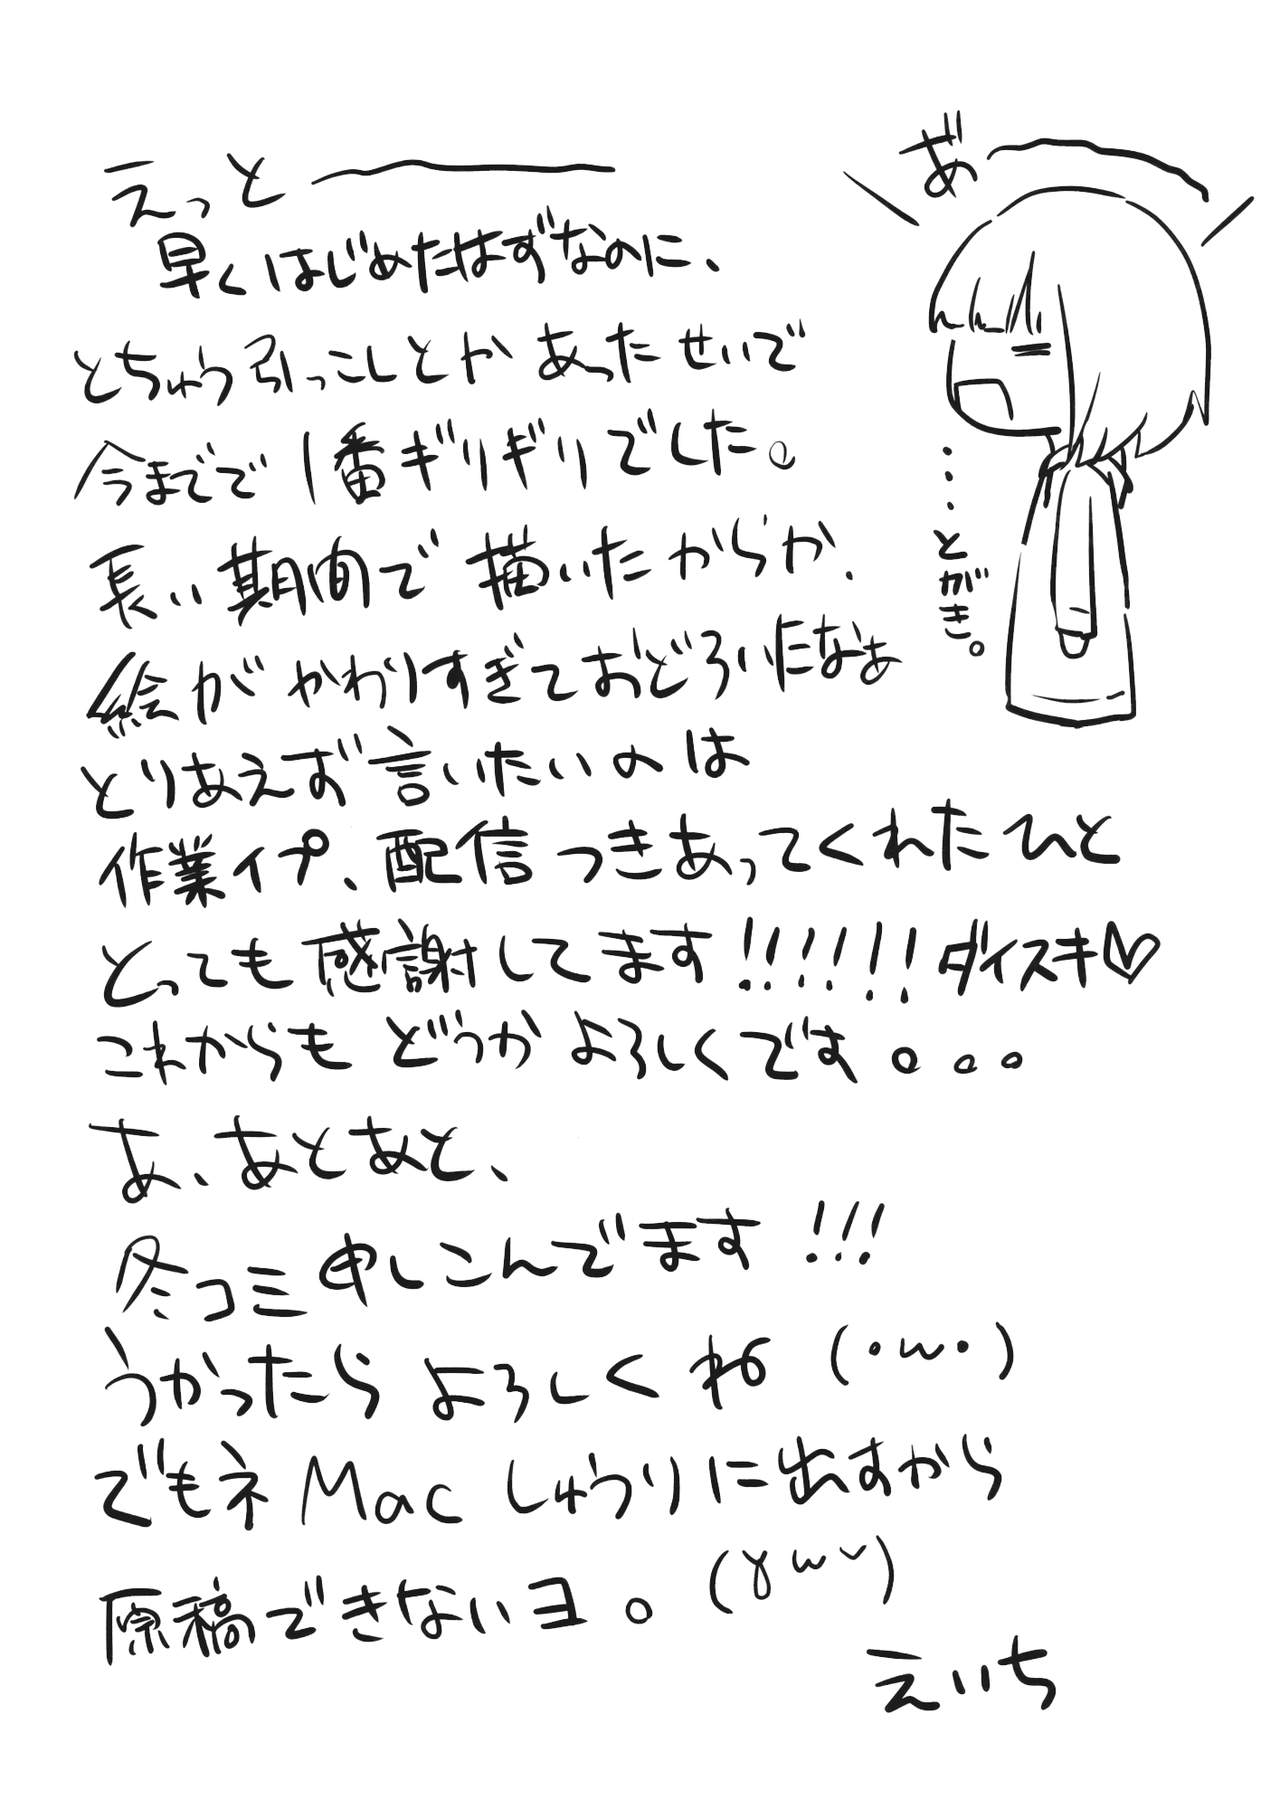 あ゛
…とがき。
えっと――
早くはじめたはずなのに、
とちゅう引っこしとかあったせいで
今までで1番ギリギリでした。
長い期間で描いたからか、
絵がかわりすぎておどろいたなぁ
とりあえず言いたいのは
作業イプ、配信つきあってくれたひと
とっても感謝してます!!!!!! ダイスキ♡
これからもどうかよろしくです。。。
あ、あとあと、
冬コミ申しこんでます!!!
うかったらよろしくね (・ω・)
でもネ Mac しゅうりに出すから
原稿できないヨ。(Yω〜)
えいち